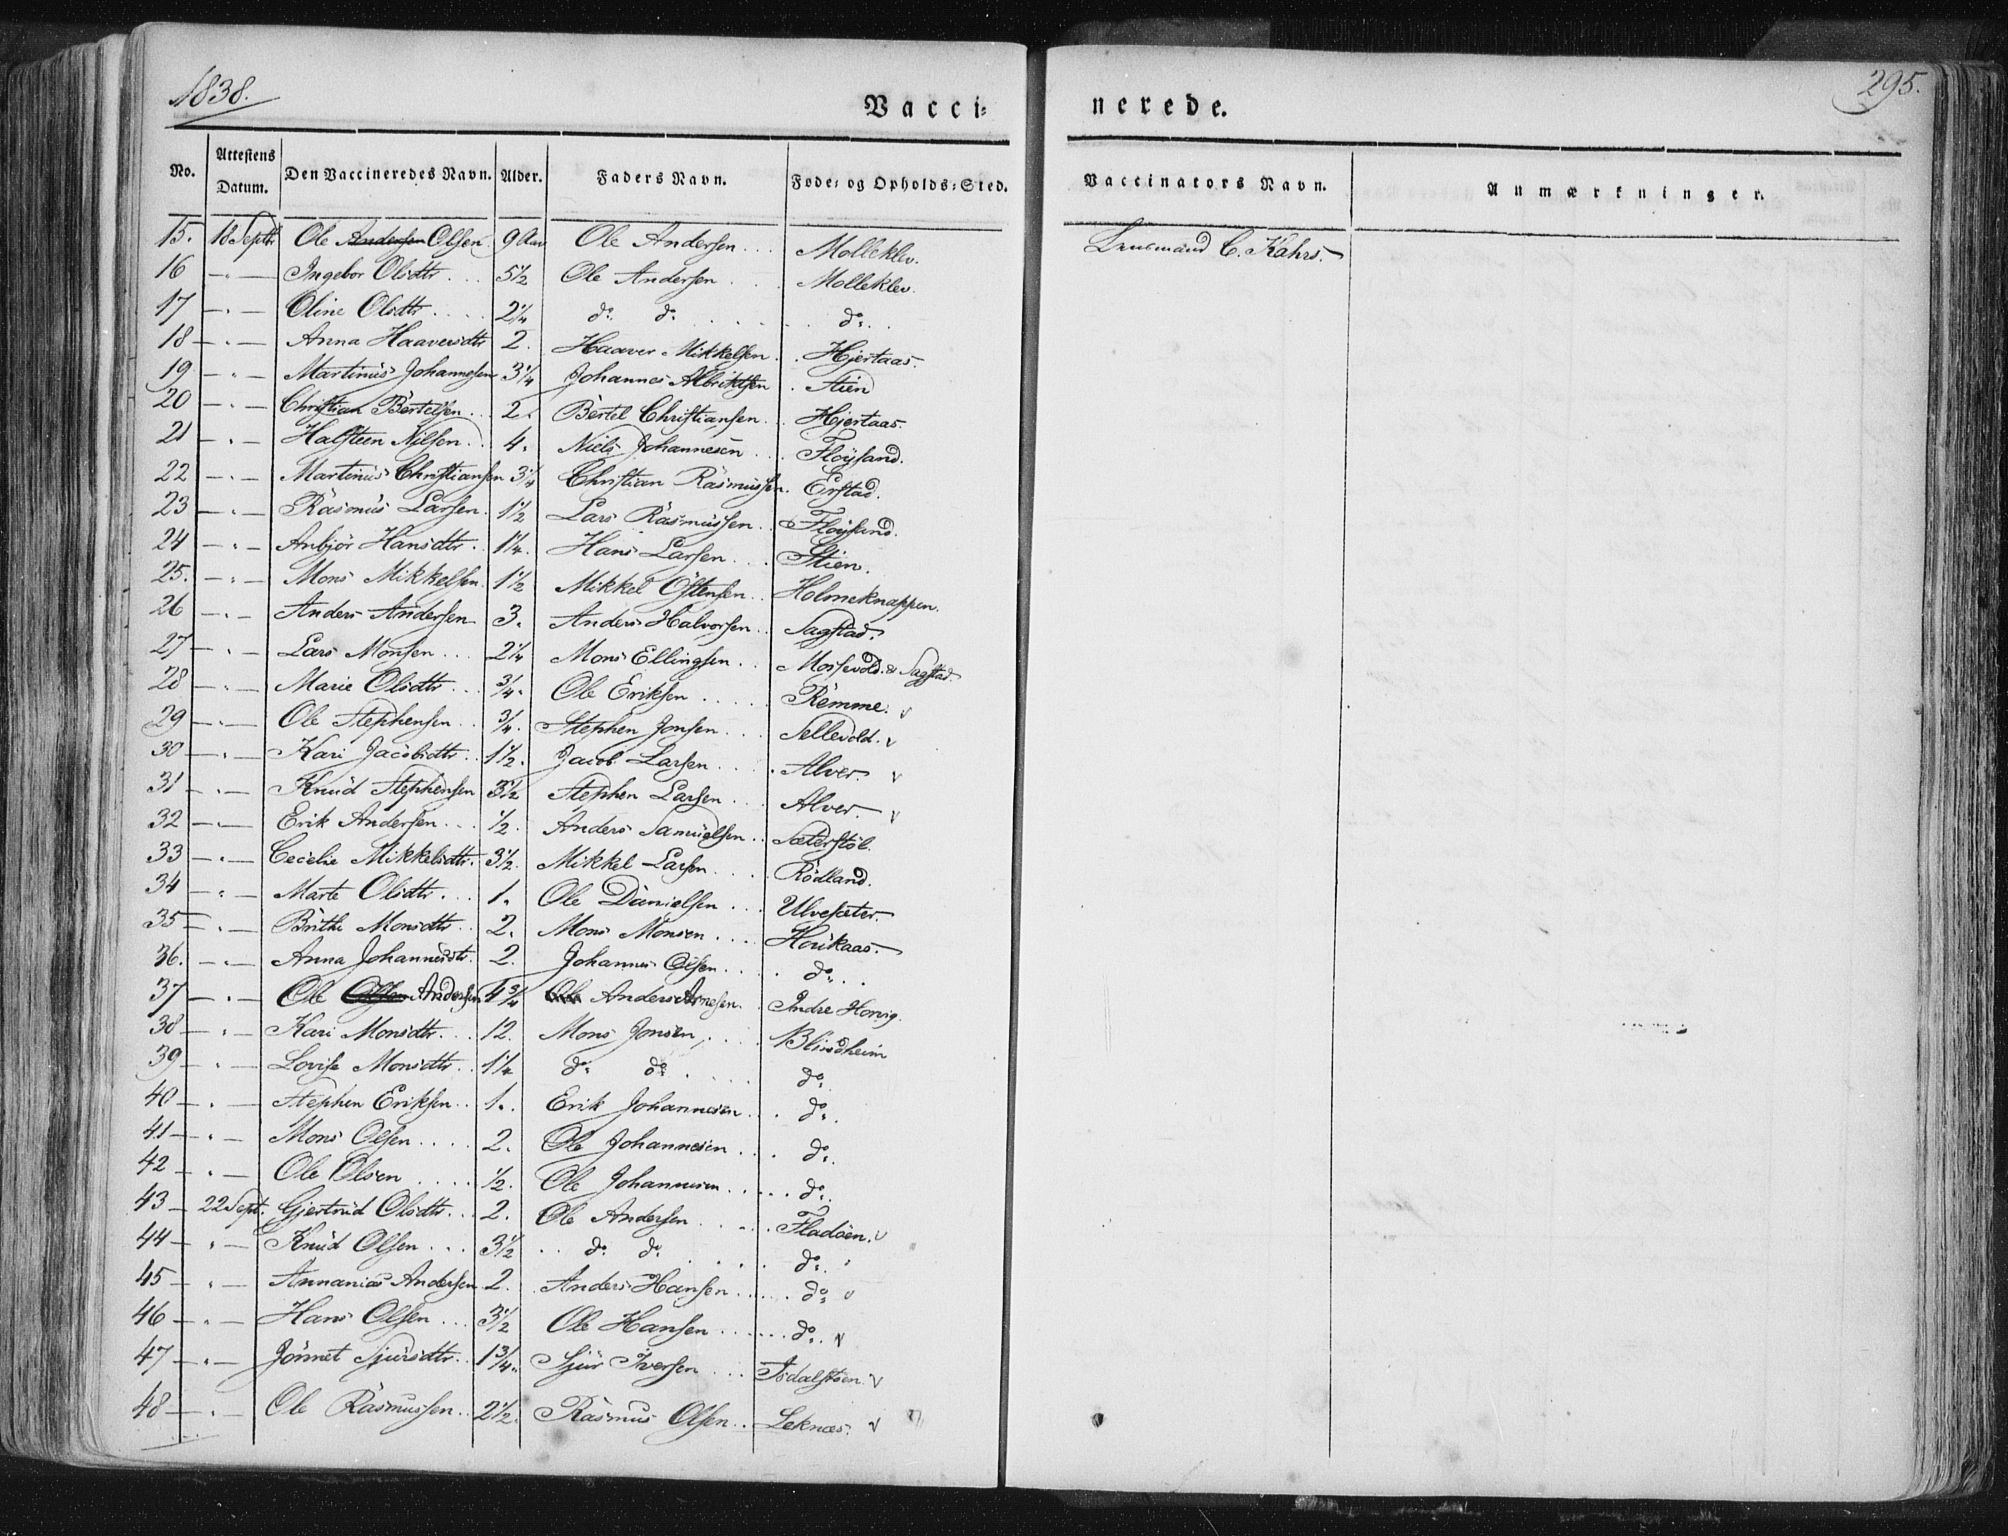 1838.
295.
Vacci- nerede.
No. Attestens Datum. Den Vaccineredes Navn. Alder. Faders Navn. Føde- og Opholds-Sted. Vaccinators Navn. Anmærkninger.
15. 18 Septbr Ole Andersen Olsen 9 Aar Ole Andersen Molleklev. C. Kahrs.
16 - " - Ingebor Olsdtr 5½ Ole Andersen Molleklev.
17 - " - Oline Olsdtr 2¼ do. do. do.
18 - " - Anna Haaversdtr 2. Haaver Mikkelsen Hjertaas.
19 - " - Martinus Johannesen 3¼ Johannes Albriktsen Stien
20 - " - Christian Bertelsen 2. Bertel Christiansen Hjertaas.
21 - " - Halsteen Nilsen 4. Niels Johannesen Fløysand.
22 - " - Martinus Christiansen 3¼ Christian Rasmussen Erstad.
23 - " - Rasmus Larsen 1½ Lars Rasmussen Fløysand.
24 - " - Anbjør Hansdtr 1¼. Hans Larsen Stien.
25. - " - Mons Mikkelsen 1½ Mikkel Østensen Holmeknappen.
26 - " - Anders Andersen 3. Anders Halvorsen Sagstad.
27 - " - Lars Monsen 2¼ Mons Ellingsen Morsevold & Sagstad.
28 - " - Marie Olsdtr ¾. Ole Eriksen Remme. v
29 - " - Ole Stephensen ¾. Stephen Jonsen Sellevold. v
30 - " - Kari Jacobsdtr 1½. Jacob Larsen Alver. v
31 - " - Knud Stephensen 3½ Stephen Larsen Alver. v
32 - " - Erik Andersen ½. Anders Samuelsen Sæterstøl.
33 - " - Cecelie Mikkelsdtr. 3½. Mikkel Larsen Rødland.
34 - " - Marte Olsdtr 1. Ole Danielsen Ulvesæter.
35 - " - Brithe Monsdtr 2. Mons Monsen Houkaas.
36. - " - Anna Johannesdtr. 2. Johannes Olsen do.
37 - " - Ole Olsen Andersen 4¾ Ole Anders Arnesen Indre Horvig.
38 - " - Kari Monsdtr 12. Mons Jonsen Blindheim
39 - " - Lovise Monsdtr 1¼ do. do. do.
40 - " - Stephen Eriksen 1. Erik Johannesen do.
41 - " - Mons Olsen 2. Ole Johannesen do.
42 - " - Ole Olsen ½. Ole Johannesen do.
43 - 22 Sept. Gjertrud Olsdtr 2. Ole Andersen Fladøen. v
44 - " - Knud Olsen 3½ do. do. do.
45 - " - Annanias Andersen 2. Anders Hansen do. v
46 - " - Hans Olsen 3½ Ole Hansen do. v
47 - " - Jønnet Sjursdtr 1¾. Sjur Iversen Isdalstøen. v
48 - " - Ole Rasmussen 2½. Rasmus Olsen Leknæs. v